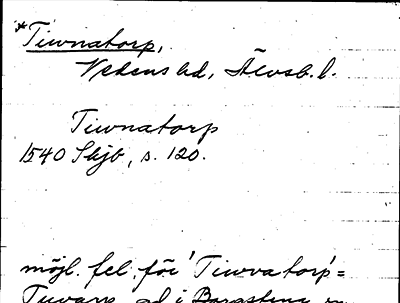 *Tiwnatorp,
Vedens hd, Älvsb. l.
Tiwnatorp
1540 Skjb, s. 120.
möjl. fel för 'Tiwvatorp' =
Tuvarp, gd i Borgstena